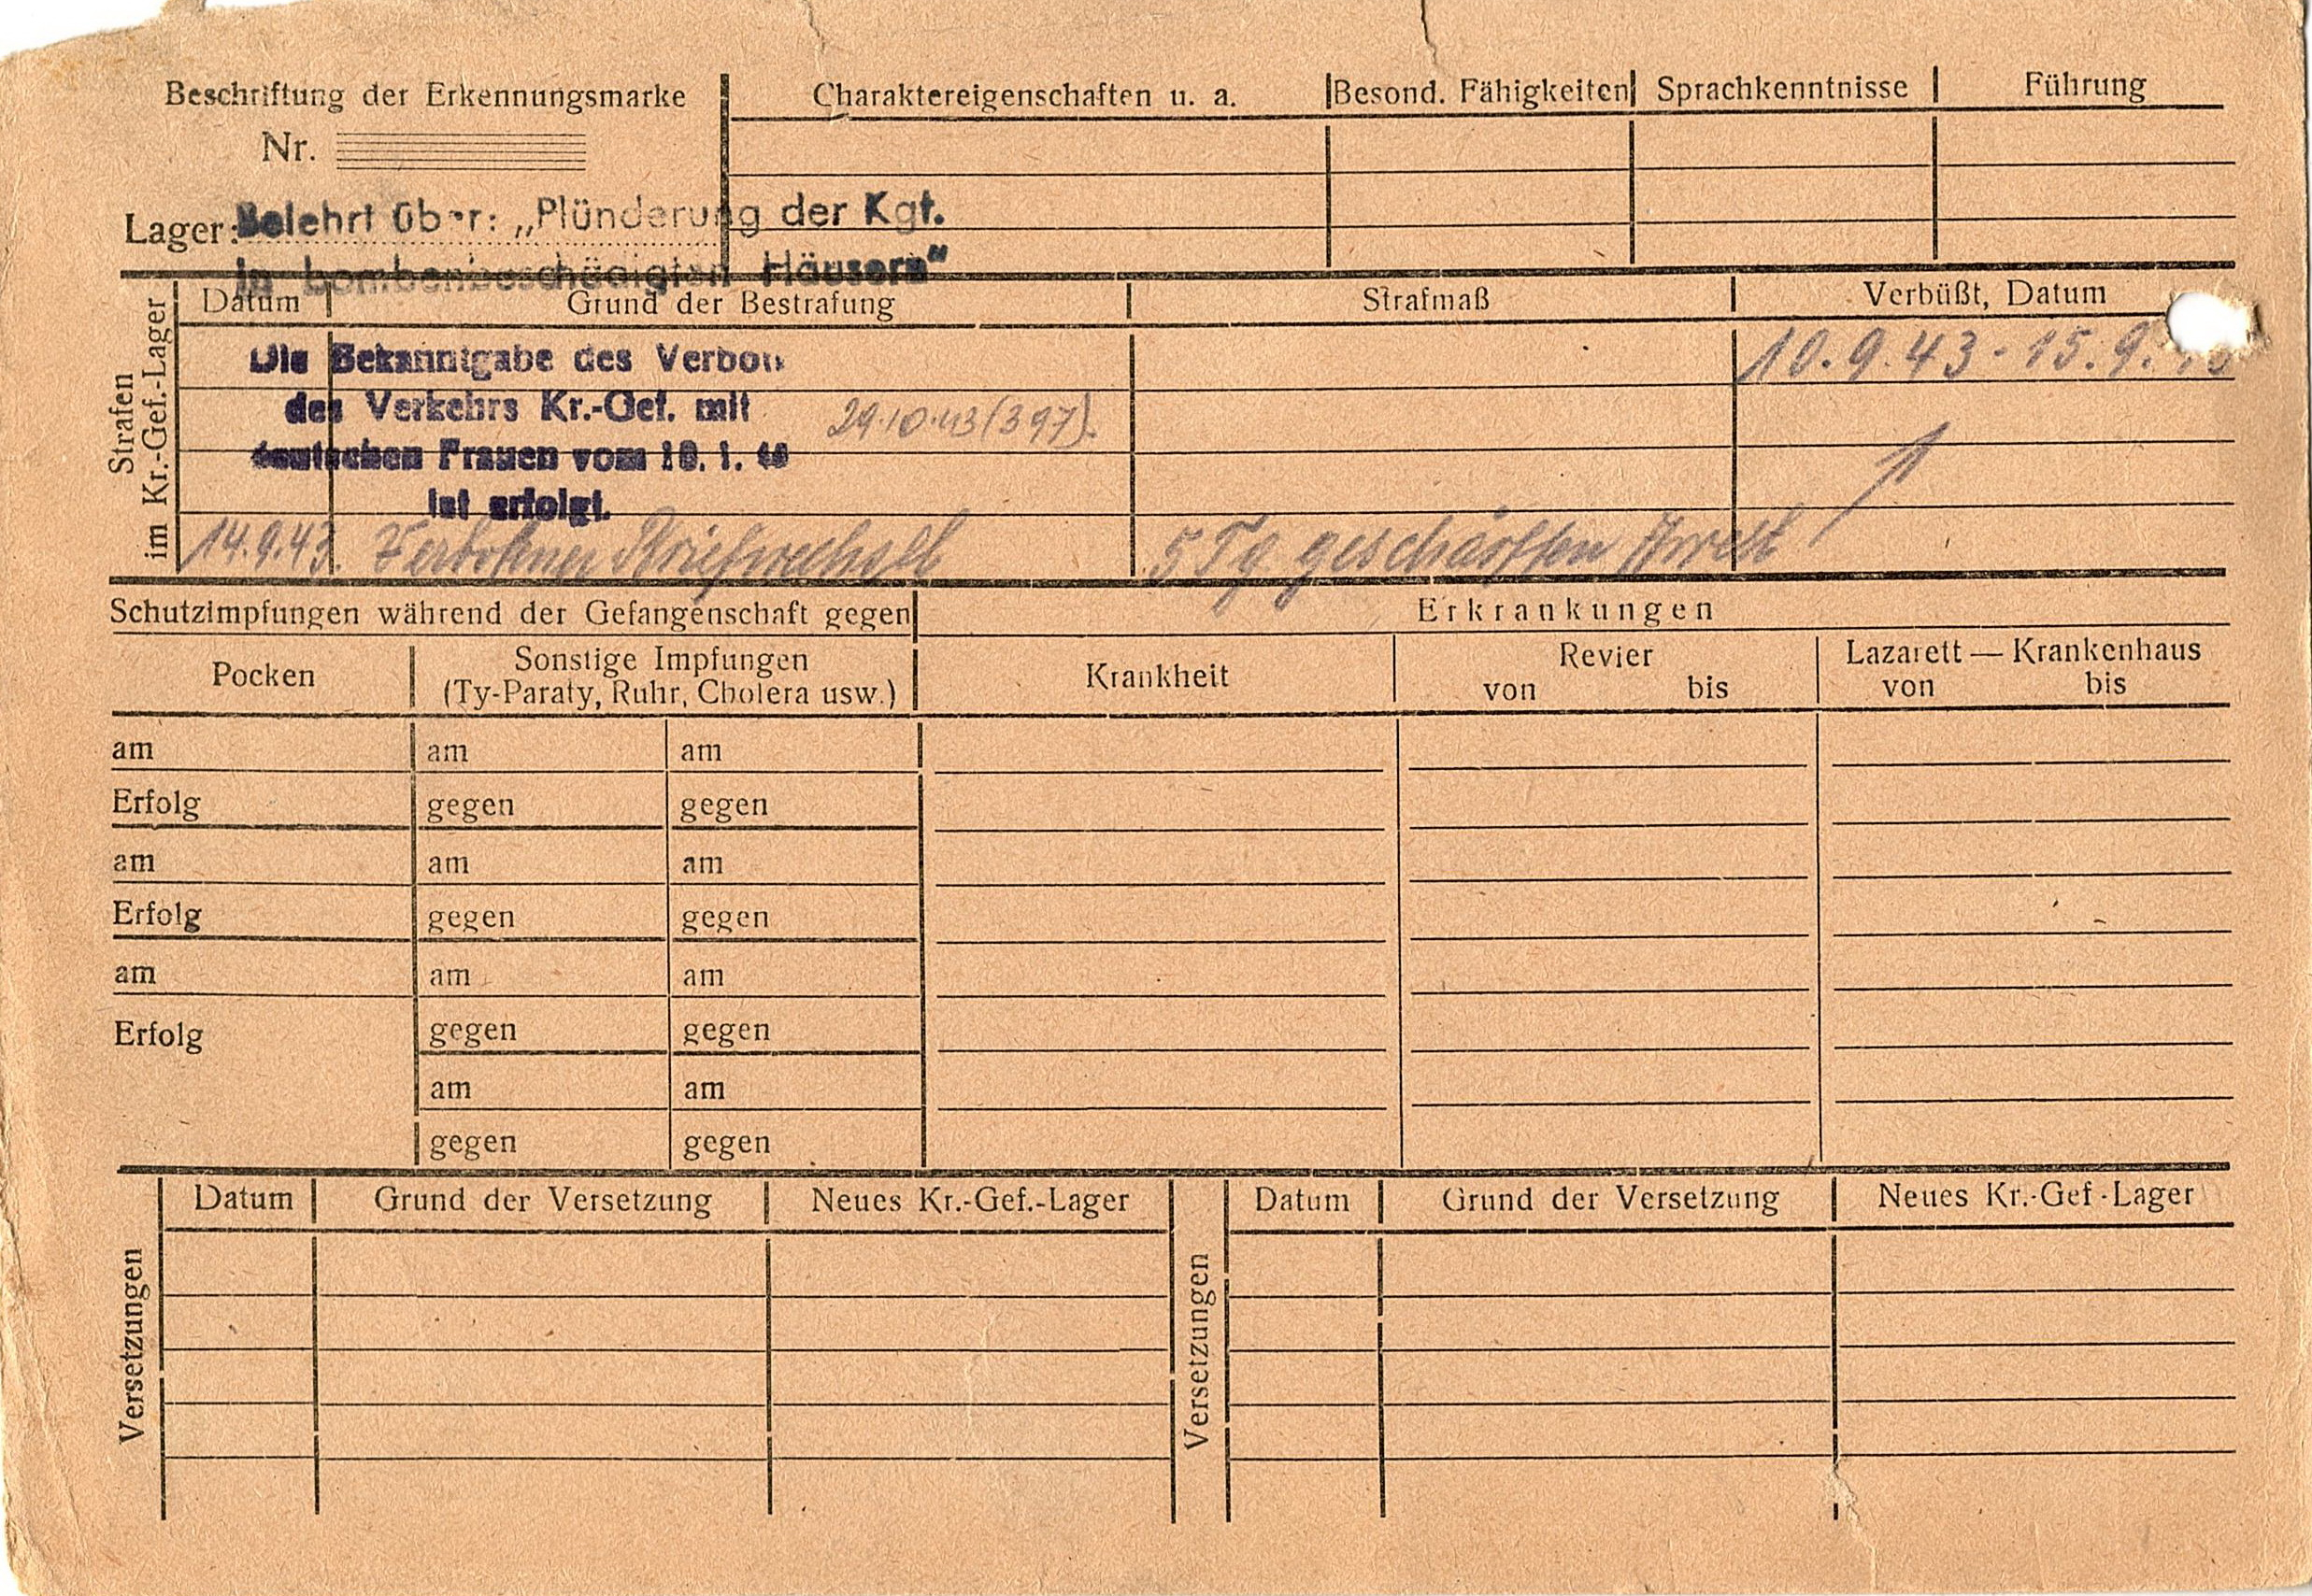 Beschriftung der Erkennungsmarke
Nr.
Lager:
Charaktereigenschaften u. a.
Besond. Fähigkeiten
Sprachkenntnisse
Führung
Belehrt über: „Plünderung der Kgf.
in bombenbeschädigten Häusern“
Strafen
im Kr.-Gef.-Lager
Datum
Grund der Bestrafung
Strafmaß
Verbüßt, Datum
Die Bekanntgabe des Verbots
des Verkehrs Kr.-Gef. mit
deutschen Frauen vom 10. 1. 40
ist erfolgt.
29.10.43 (397).
10.9.43 - 15.9.
14.9.43. Verbotener Briefwechsel
5 Tg. geschärften Arrest
Schutzimpfungen während der Gefangenschaft gegen
Erkrankungen
Pocken
Sonstige Impfungen
(Ty-Paraty, Ruhr, Cholera usw.)
Krankheit
Revier
von bis
Lazarett — Krankenhaus
von bis
am am am
Erfolg gegen gegen
am am am
Erfolg gegen gegen
am am am
Erfolg gegen gegen
am am
gegen gegen
Versetzungen
Datum
Grund der Versetzung
Neues Kr.-Gef.-Lager
Versetzungen
Datum
Grund der Versetzung
Neues Kr.-Gef.-Lager